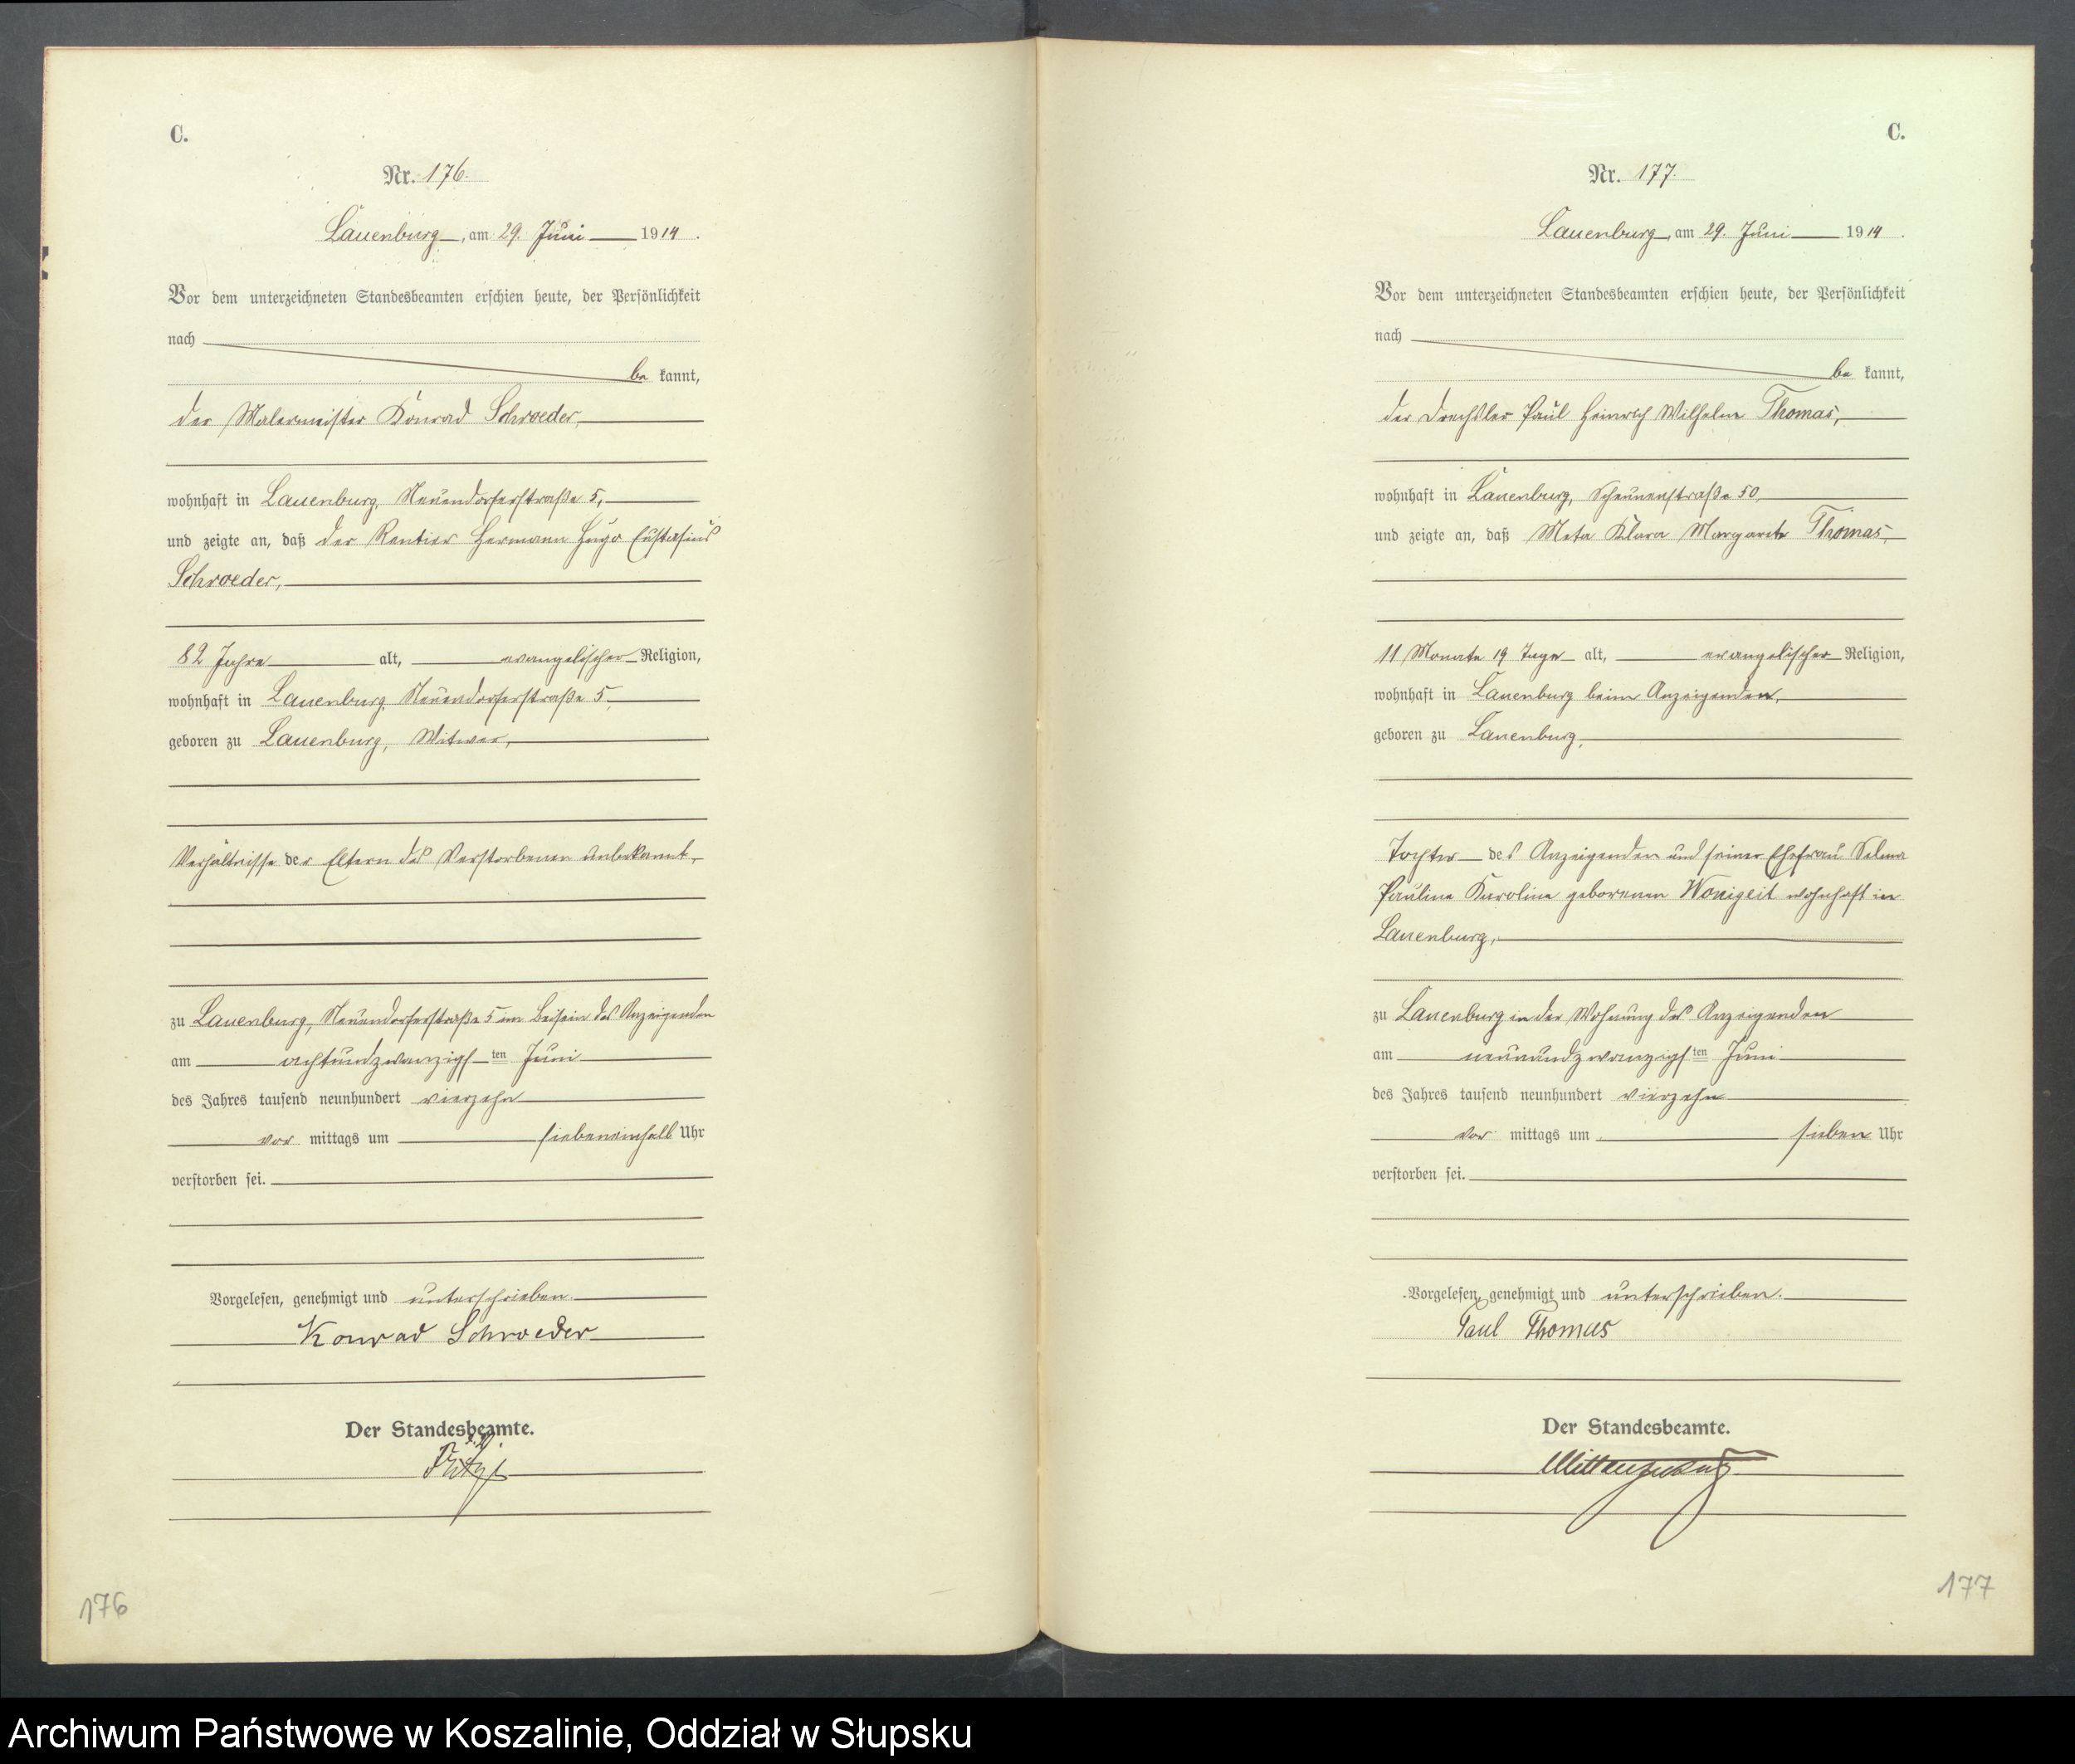 C.
Nr. 176.
Lauenburg, am 29. Juni 1914.
Vor dem unterzeichneten Standesbeamten erschien heute, der Persönlichkeit
nach
be kannt,
der Malermeister Konrad Schroeder,
wohnhaft in Lauenburg, Neuendorferstraße 5,
und zeigte an, daß der Rentier Hermann Hugo Eustasius
Schroeder,
82 Jahre alt, evangelischer Religion,
wohnhaft in Lauenburg, Neuendorferstraße 5,
geboren zu Lauenburg, Witwer,
Verhältnisse der Eltern des Verstorbenen unbekannt,
zu Lauenburg, Neuendorferstraße 5 im Beisein des Anzeigenden
am achtundzwanzigsten Juni
des Jahres tausend neunhundert vierzehn
vor mittags um siebeneinhalb Uhr
verstorben sei.
Vorgelesen, genehmigt und unterschrieben.
Konrad Schroeder
Der Standesbeamte.
176
C.
Nr. 177.
Lauenburg, am 29. Juni 1914.
Vor dem unterzeichneten Standesbeamten erschien heute, der Persönlichkeit
nach
be kannt,
der Drechsler Paul Heinrich Wilhelm Thomas,
wohnhaft in Lauenburg, Scheunenstraße 50,
und zeigte an, daß Meta Klara Margarete Thomas,
11 Monate 19 Tage alt, evangelischer Religion,
wohnhaft in Lauenburg beim Anzeigenden,
geboren zu Lauenburg,
Tochter des Anzeigenden und seiner Ehefrau Selma
Pauline Karoline geborenen Wonigeit wohnhaft in
Lauenburg,
zu Lauenburg in der Wohnung des Anzeigenden
am neunundzwanzigsten Juni
des Jahres tausend neunhundert vierzehn
vor mittags um sieben Uhr
verstorben sei.
Vorgelesen, genehmigt und unterschrieben.
Paul Thomas
Der Standesbeamte.
177
Archiwum Państwowe w Koszalinie, Oddział w Słupsku